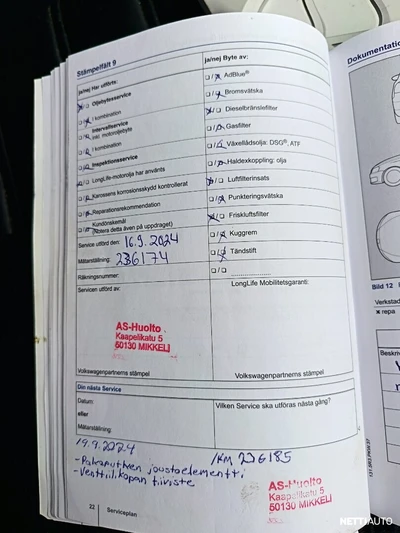 Stämpelfält 9
ja/nej Har utförts:
Oljebytesservice
I kombination
Intervallservice
inkl. motoroljebyte
I kombination
Inspektionsservice
LongLife-motorolja har använts
Karossens korrosionsskydd kontrollerat
Reparationsrekommendation
Kundönskemål
(Notera detta även på uppdraget)
Service utförd den: 16.9.2024
Mätarställning: 236174
Räkningsnummer:
Servicen utförd av:
AS-Huolto
Kaapelikatu 5
50130 MIKKELI
Volkswagenpartnerns stämpel
ja/nej Byte av:
AdBlue®
Bromsvätska
Dieselbränslefilter
Gasfilter
Växellådsolja: DSG®, ATF
Haldexkoppling: olja
Luftfilterinsats
Punkteringsvätska
Friskluftsfilter
Kuggrem
Tändstift
LongLife Mobilitetsgaranti:
Volkswagenpartnerns stämpel
Din nästa Service
Datum:
eller
Mätarställning:
Vilken Service ska utföras nästa gång?
19.9.2024 /KM 236185
-Pakoputken joustoelementti
-Venttiilikopan tiiviste
AS-Huolto
Kaapelikatu 5
50130 MIKKELI
22 Serviceplan
Dokumentatio
Bild 12
Verkstad
× repa
Beskriv
NETTIAUTO